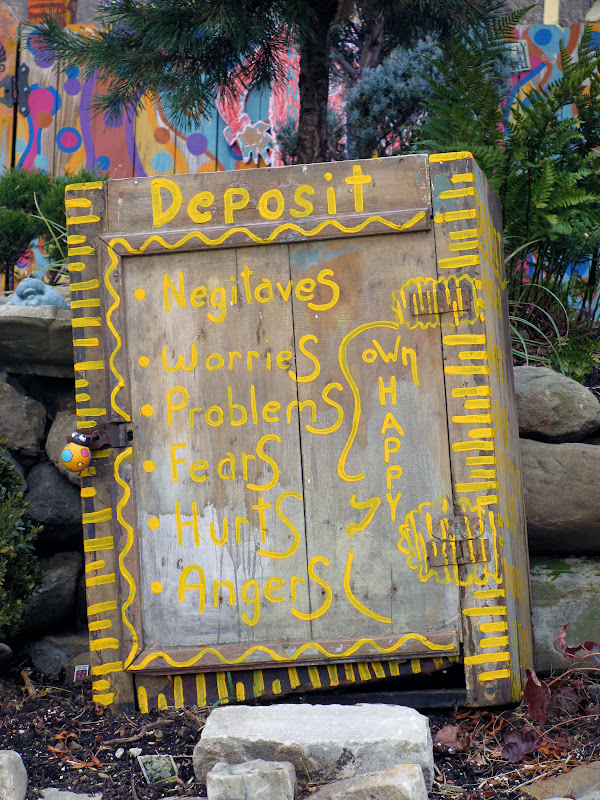 Deposit
• Negitaves
• Worries
• Problems
• Fears
• Hurts
• Angers
own
HAPPY